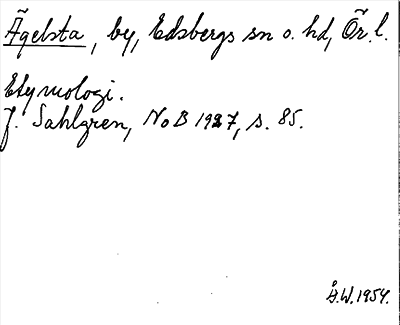 Ägelsta, by, Edsbergs sn o. hd, Ör. l.
Etymologi.
J. Sahlgren, NoB 1927, s. 85.
Å.W. 1954.